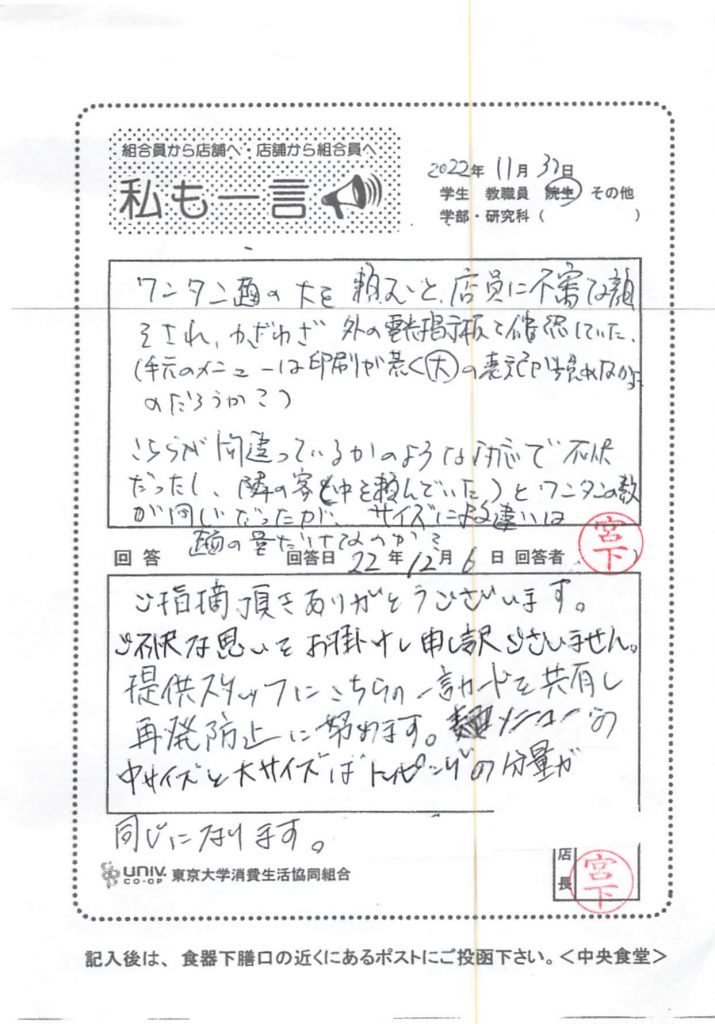 組合員から店舗へ・店舗から組合員へ
私も一言
2022年 11月 30日
学生 教職員 院生 その他
学部・研究科（ ）
ワンタン麺の大を頼むと、店員に不審な顔
をされ、わざわざ外の電光掲示板で確認していた、
(手元のメニューは印刷が荒く大の表記が読めなかった
のだろうか？)
こちらが間違っているかのような対応で不快
だったし、隣の客(中を頼んでいた)とワンタンの数
が同じだったが、サイズによる違いは
麺の量だけなのか？
回答 回答日 22年12月6日 回答者 宮下 )
ご指摘頂きありがとうございます。
ご不快な思いをお掛けし申し訳ございません。
提供スタッフにこちらの一言カードを共有し
再発防止に努めます。麺メニューの
中サイズと大サイズはトッピングの分量が
同じになります。
UNIV. CO-OP 東京大学消費生活協同組合
店長 宮下
記入後は、食器下膳口の近くにあるポストにご投函下さい。＜中央食堂＞